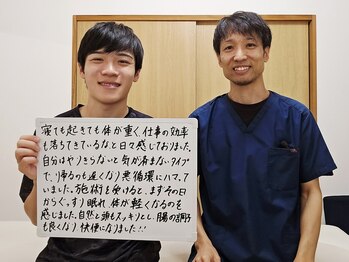 寝ても起きても体が重く仕事の効率
も落ちてきているなと日々感じておりました。
自分はやりきらないと気が済まないタイプ
で、帰るのも遅くなり悪循環にハマって
いました。施術を受けると、まずその日
からぐっすり眠れ、体が軽くなるのを
感じました。自然と頭もスッキリとし、腸の調子
も良くなり快便になりました!!